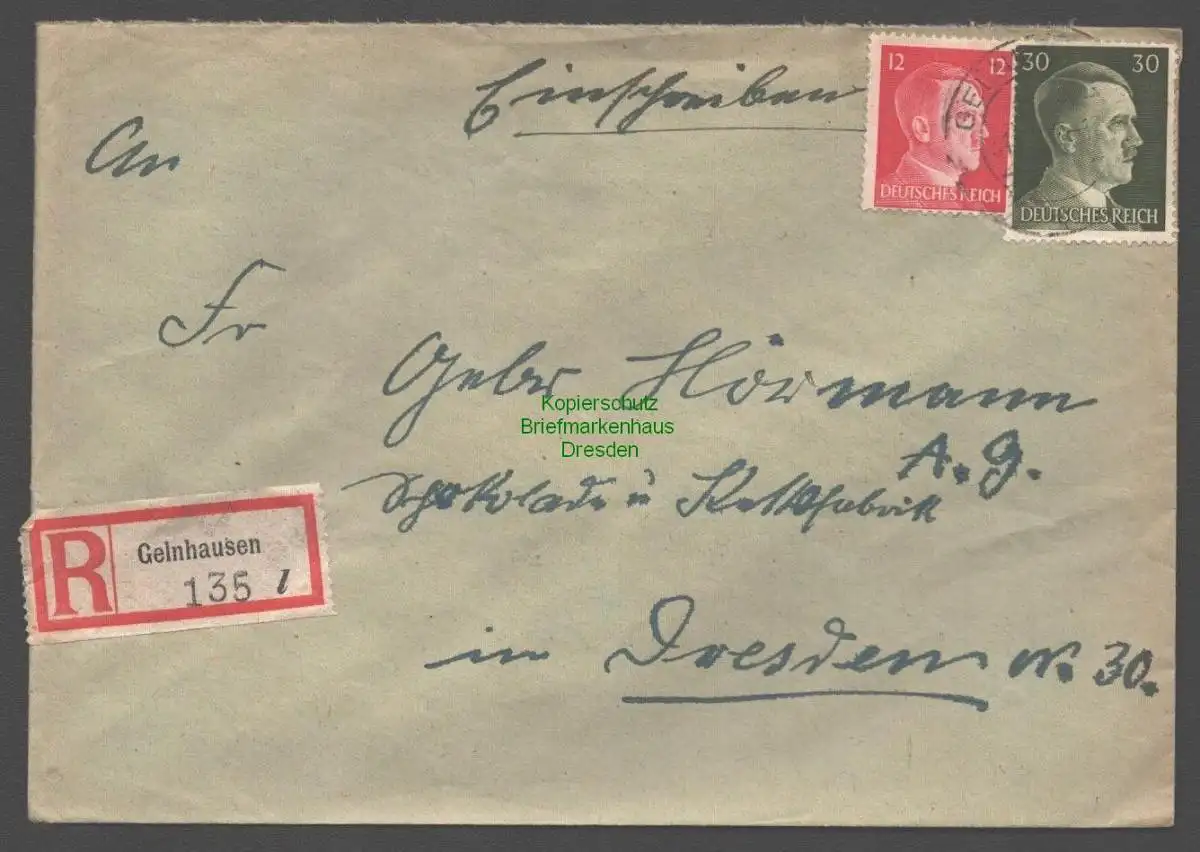 Einschreiben
12 12
DEUTSCHES REICH
30 30
DEUTSCHES REICH
GEL
An
Fr
Gebr Hörmann
A.G.
Schokolade u Keksfabrik
Kopierschutz
Briefmarkenhaus
Dresden
R Gelnhausen
135 l
in Dresden N. 30.